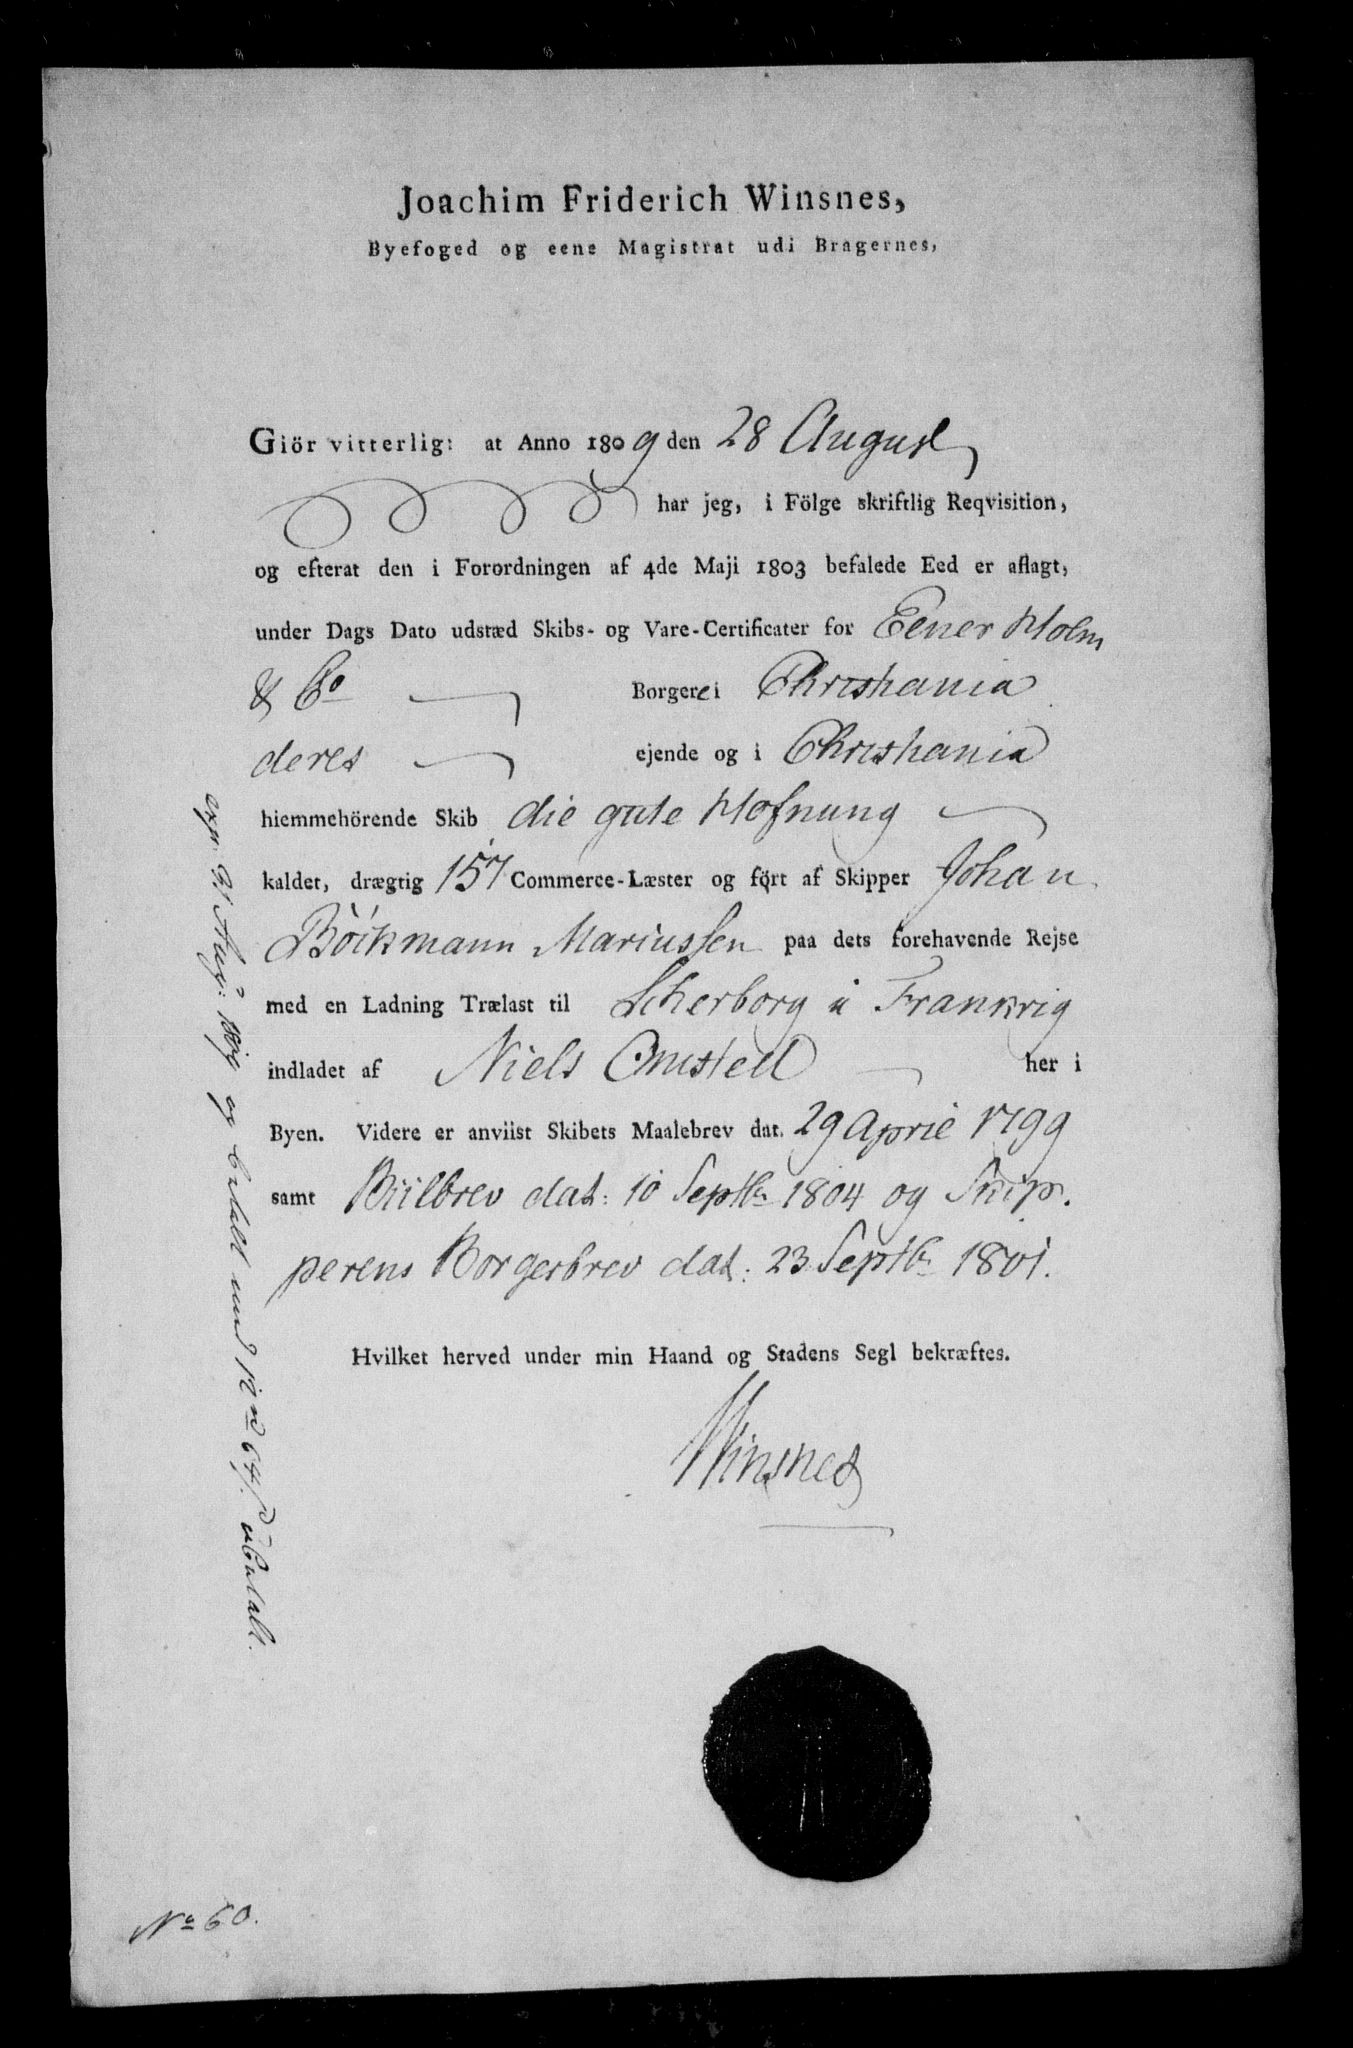 Joachim Friderich Winsnes,
Byefoged og eene Magistrat udi Bragernes,
Giör vitterlig: at Anno 1809 den 28 August
har jeg, i Fölge skriftlig Reqvisition,
og efterat den i Forordningen af 4de Maji 1803 befalede Eed er aflagt,
under Dags Dato udstæd Skibs- og Vare-Certificater for Eener Holm
& Co Borgere i Christiania
deres ejende og i Christiania
hiemmehörende Skib die gute Hofnung
kaldet, drægtig 157 Commerce-Læster og fört af Skipper Johan
Böckmann Mariussen paa dets forehavende Rejse
med en Ladning Trælast til Scherborg i Frankrig
indladet af Niels Omsted her i
Byen. Videre er anviist Skibets Maalebrev dat. 29 April 1799
samt Biilbrev dat: 10 Septbr 1804 og Skip-
perens Borgerbrev dat: 23 Septbr 1801.
Hvilket herved under min Haand og Stadens Segl bekræftes.
Winsnes
exp: 31 Aug: 1809 og betalt med 12 rd 64 s
No 60.